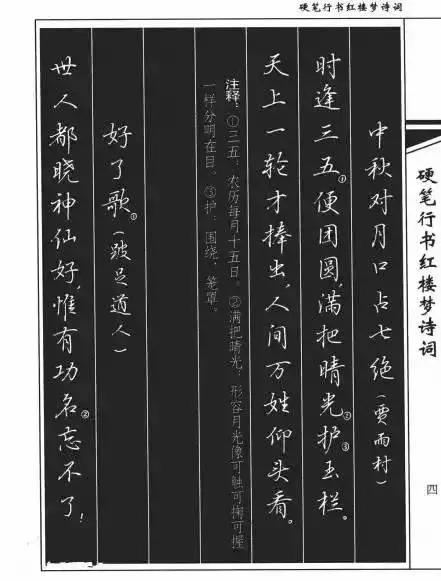 硬笔行书红楼梦诗词
硬笔行书红楼梦诗词
四
中秋对月口占七绝（贾雨村）
时逢三五①便团圆，满把晴光②护③玉栏。
天上一轮才捧出，人间万姓仰头看。
注释：①三五：农历每月十五日。②满把晴光：形容月光像可触可掬可握
一样分明在目。③护：围绕、笼罩。
好了歌①（跛足道人）
世人都晓神仙好，惟有功名②忘不了！